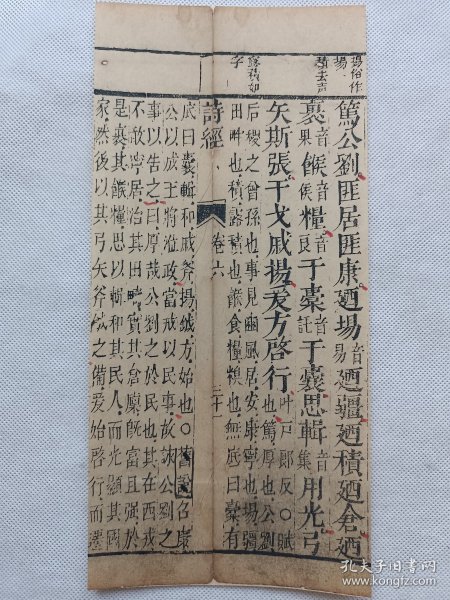 積去聲
篤公劉匪居匪康廼場音易廼疆廼積廼倉廼
裹音果餱音侯糧音良于橐音託于囊思輯音集用光弓
矢斯張干戈戚揚爰方啓行叶戶郎反○賦也篤厚也公劉
后稷之曾孫也事見豳風居安康寧也場疆
田畔也積露積也餱食糧糗也無底曰橐有
詩經 卷六 三十一
底曰囊輯和戚斧揚鉞方始也○舊說召康
公以成王將涖政當戒以民事故詠公劉之
事以告之曰厚哉公劉之於民也其在西戎
不敢寧居治其田疇實其倉廩旣富且强於
是裹其餱糧思以輯和其民人而光顯其國
家然後以其弓矢斧鉞之備爰始啓行而遷
孔夫子旧书网
kongfz.com